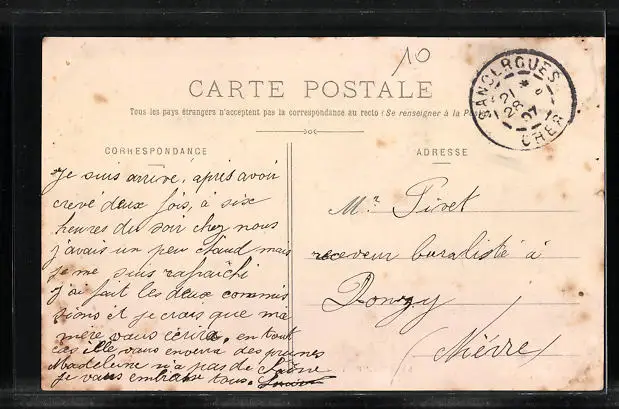 10
CARTE POSTALE
Tous les pays étrangers n'acceptent pas la correspondance au recto (Se renseigner à la Poste)
SANCERGUES
21
28
07
CHER
CORRESPONDANCE
Je suis arrivé, après avoir
crevé deux fois, à six
heures du soir chez nous
j'avais un peu chaud mais
je me suis rafraîchi
J'ai fait les deux commis
sions et je crois que ma
mère vous écrira, en tout
cas elle vous enverra des prunes
Madeleine n'a pas de
je vous embrasse tous.
ADRESSE
Mr Pivet
receveur buraliste à
Donzy
(Nièvre)